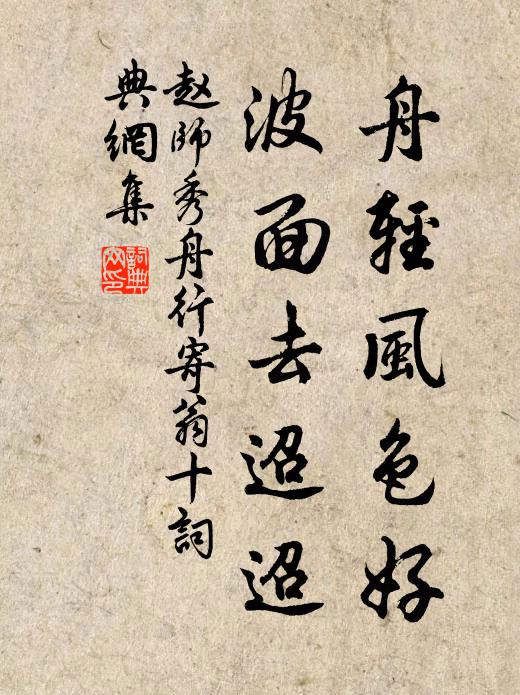 舟輕風色好
波面去迢迢
赵師秀舟行寄翁十詞
典網集
詞典